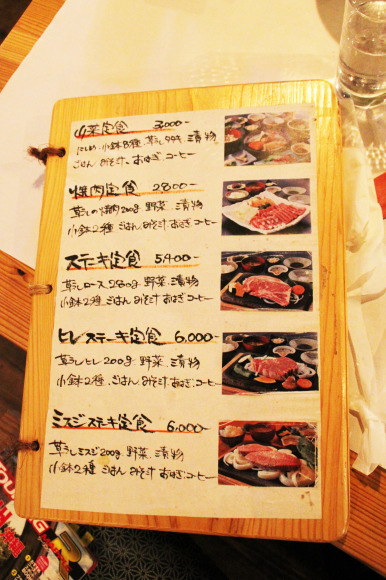 山菜定食 3,000-
にしめ、小鉢8種、草うしタタキ、漬物
ごはん みそ汁、おはぎ、コーヒー
焼肉定食 2,800-
草うしの焼肉200g 野菜、漬物
小鉢2種、ごはん みそ汁 おはぎ、コーヒー
ステーキ定食 5,400-
草うしロース 280g 野菜、漬物
小鉢2種、ごはん みそ汁 おはぎ、コーヒー
ヒレステーキ定食 6,000-
草うしヒレ 200g 野菜、漬物
小鉢2種、ごはん みそ汁 おはぎ、コーヒー
ミスジステーキ定食 6,000-
草うしミスジ200g 野菜、漬物
小鉢2種 ごはん みそ汁 おはぎ、コーヒー